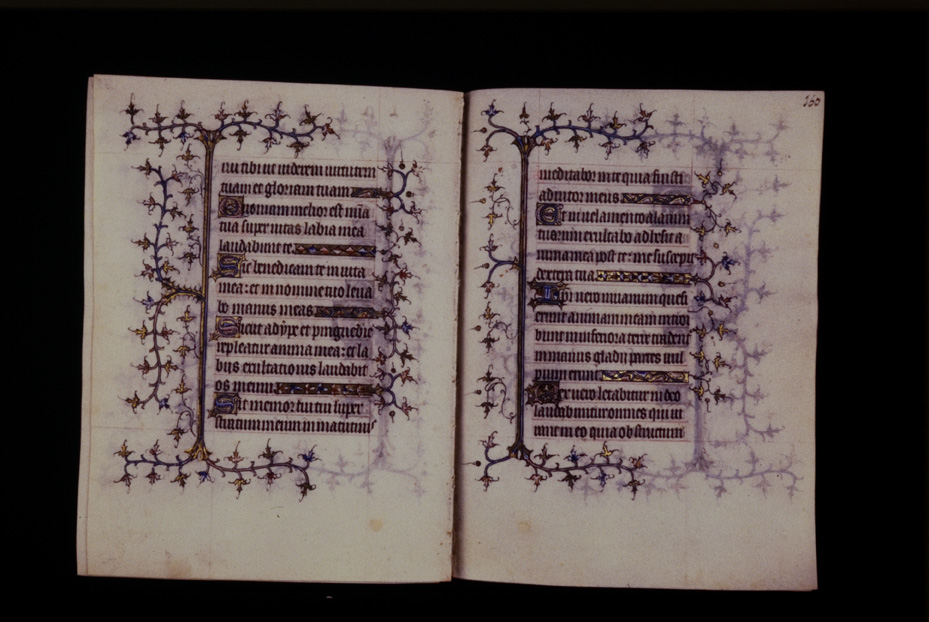 rui tibi ut viderem virtutem
tuam et gloriam tuam
Quoniam melior est mīa
tua super vitas labia mea
laudabunt te
Sic benedicam te in vita
mea: et in nomine tuo leva
bo manus meas
Sicut adype et pinguedie
repleatur anima mea: et la
bijs exultationis laudabit
os meum
Si memor fui tui super
stratum meum in matutinis
160
meditabor in te quia fuisti
adiutor meus
Et in velamento alarum
tuarum exultabo adhesit a
nima mea post te: me suscepit
dextera tua
Ipsi vero in vanum quesi
erunt animam meam introi
bunt in inferiora terre tradent
in manus gladij partes vul
pium erunt
Rex vero letabitur in deo
laudabuntur omnes qui iu
rant in eo quia obstructum